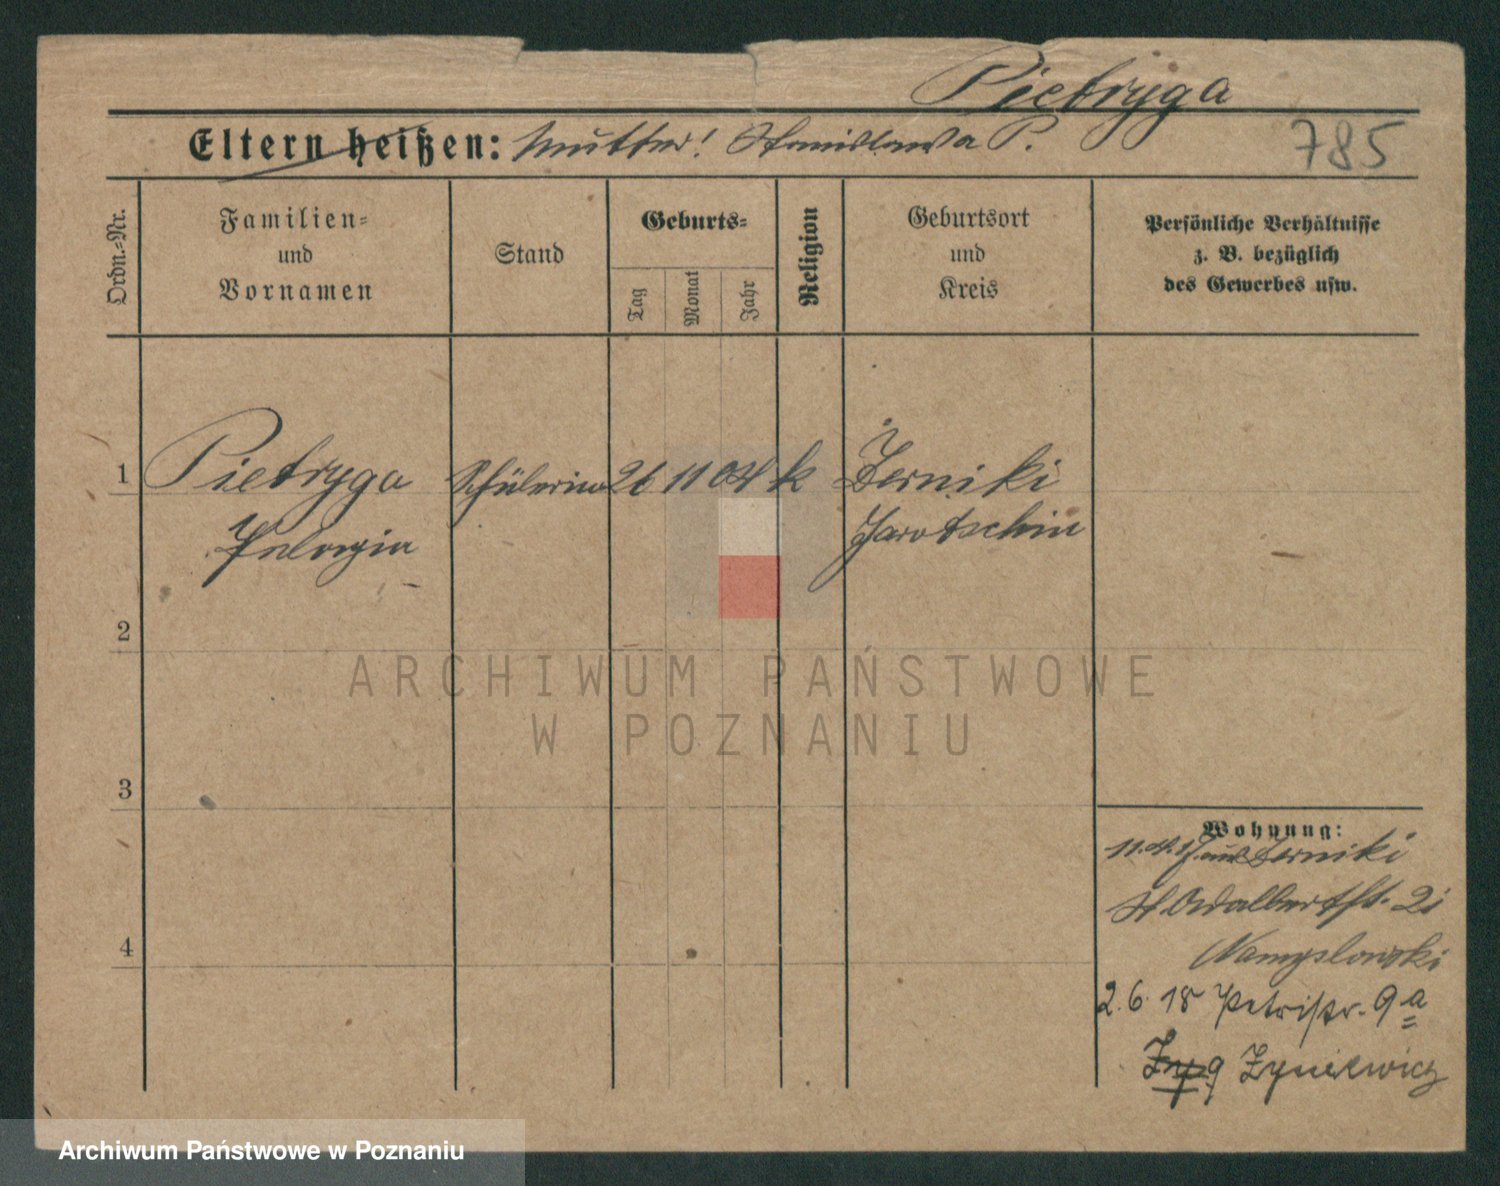 Pietryga
Eltern heißen: Mutter! Stanislawa P.
785
Ordn.=Nr.
Familien=
und
Vornamen
Stand
Geburts=
Tag
Monat
Jahr
Religion
Geburtsort
und
Kreis
Persönliche Verhältnisse
z. B. bezüglich
des Gewerbes usw.
1 Pietryga Schülerin 26 11 04 k Żerniki
Pelagia Jarotschin
2
ARCHIWUM PAŃSTWOWE
W POZNANIU
3
Wohnung:
11.4.17 aus Zerniki
St. Adalbertst. 21
4
Namyslowski
2.6.18 Petristr. 9a
Archiwum Państwowe w Poznaniu